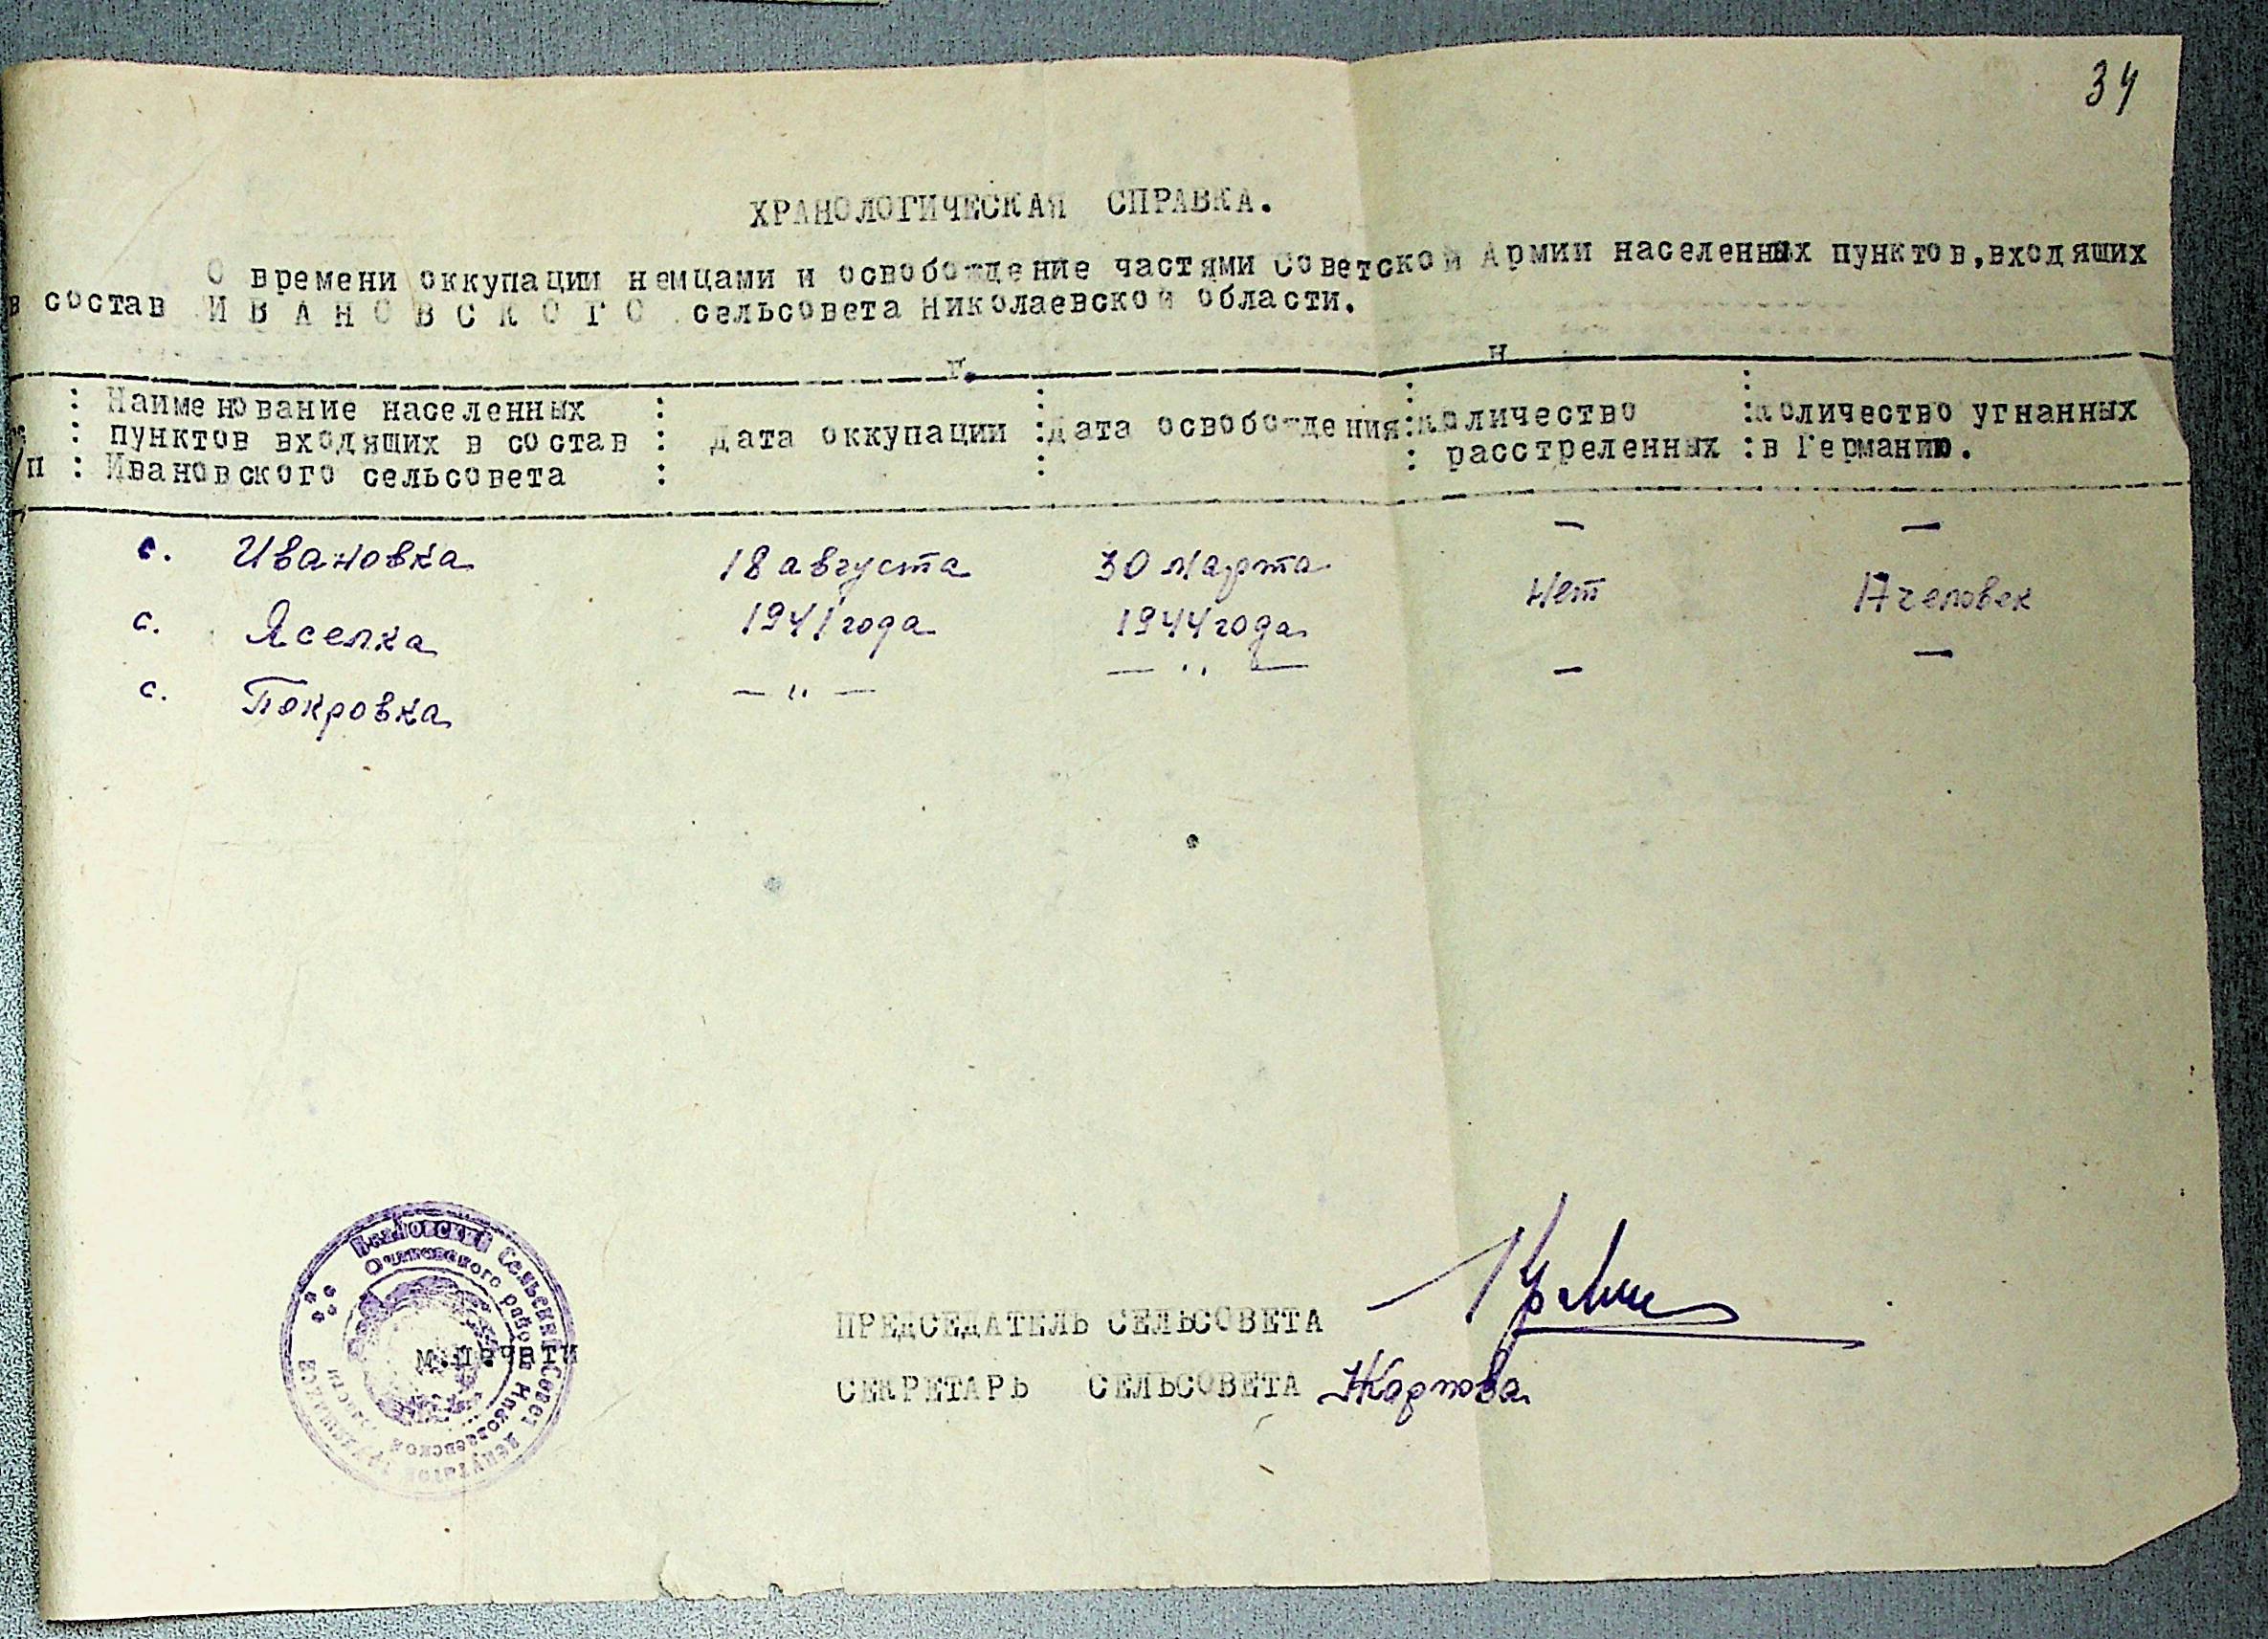 34
ХРАНОЛОГИЧЕСКАЯ СПРАВКА.
О времени оккупации немцами и освобождение частями Советской Армии населенных пунктов, входящих
в состав ИВАНОВСКОГО сельсовета Николаевской области.
г. н
п : Наименование населенных пунктов входящих в состав Ивановского сельсовета : Дата оккупации : Дата освобождения : количество расстреленных : количество угнанных в Германию.
с. Ивановка 18 августа 1941 года 30 марта 1944 года — —
с. Яселка нет человек
с. Покровка — " — — " — — —
Ивановский Сельский Совет депутатов трудящихся
Очаковского района Николаевской области
м.печати
ПРЕДСЕДАТЕЛЬ СЕЛЬСОВЕТА
СЕКРЕТАРЬ СЕЛЬСОВЕТА Жарпова